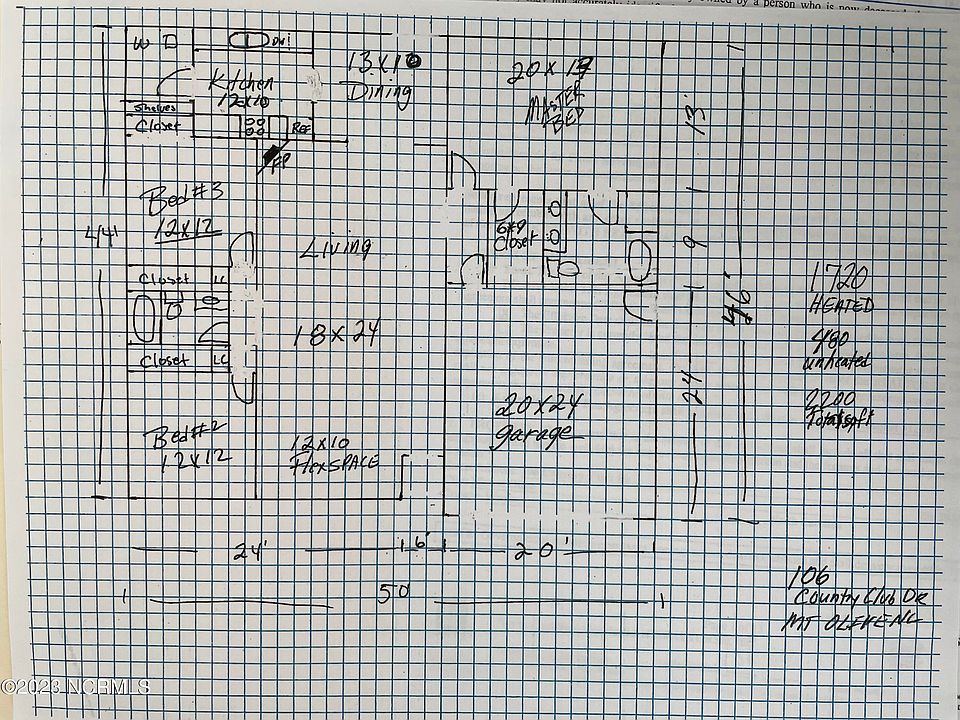 owned by a person who is now
W D
DW
Kitchen
12x10
13x10
Dining
20 x
MASTER
BED
13'
Shelves
Closet
REF
FP
Bed #3
12x12
44'
Living
6x9
Closet
9
Closet
LC
18x24
Closet
LC
46'
1720
HEATED
480
unheated
2200
Total sqft
24
20x24
garage
Bed #2
12x12
12x10
FlexSPACE
24'
6'
20'
50
106
Country Club DR
MT OLIVE NC
©2023 NCRMLS